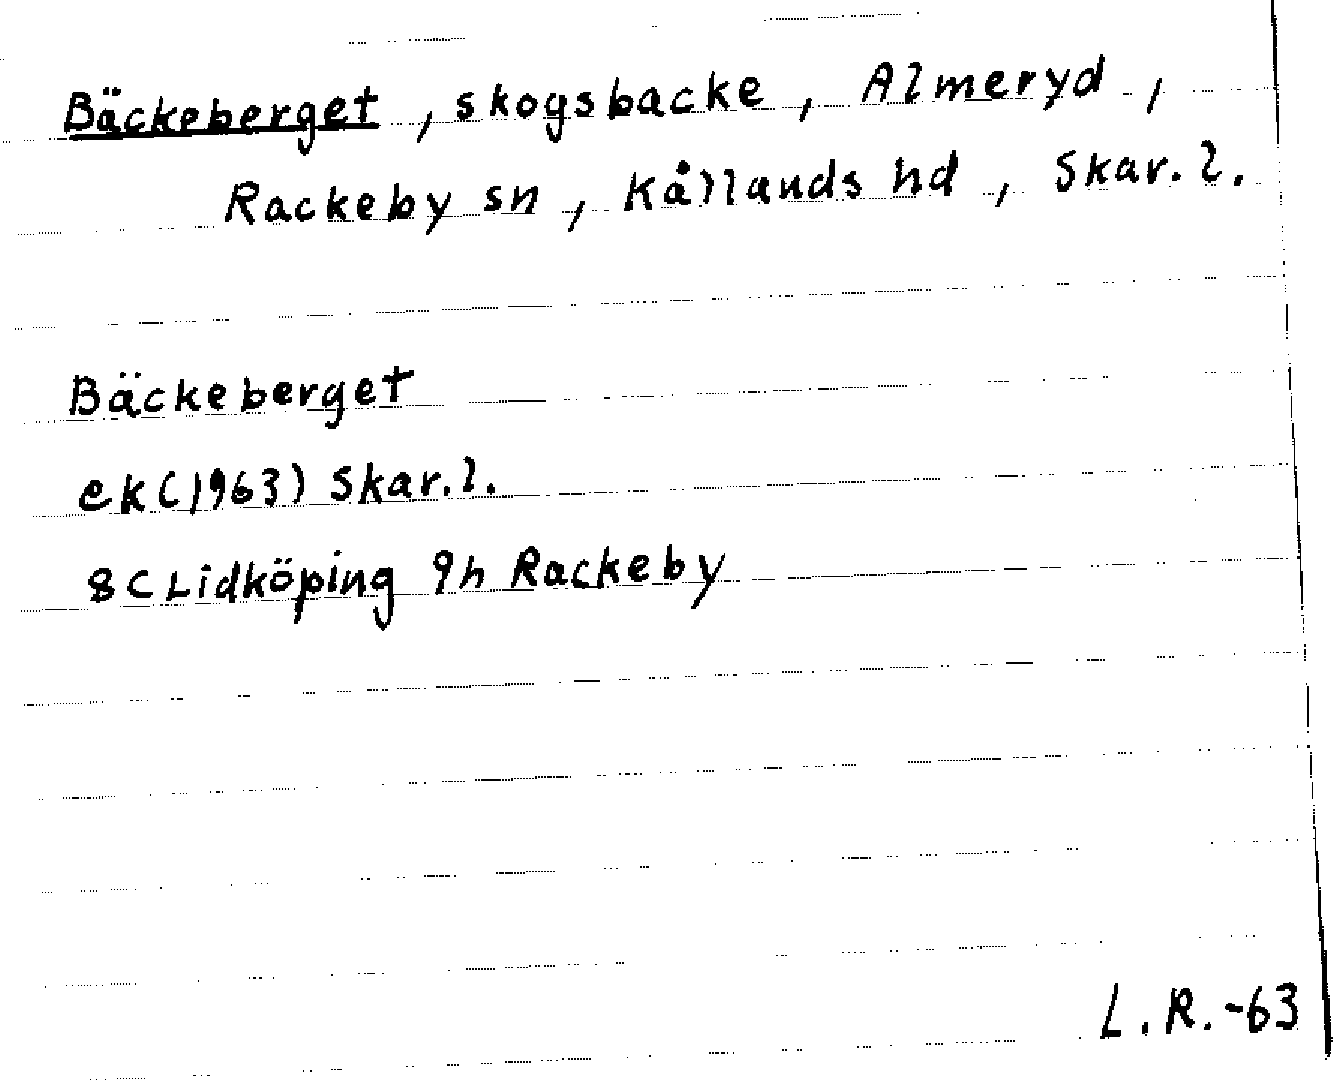 Bäckeberget, skogsbacke, Almeryd,
Rackeby sn, Kållands hd, Skar. l.
Bäckeberget
ek (1963) Skar. l.
8C Lidköping 9h Rackeby
L. R. -63